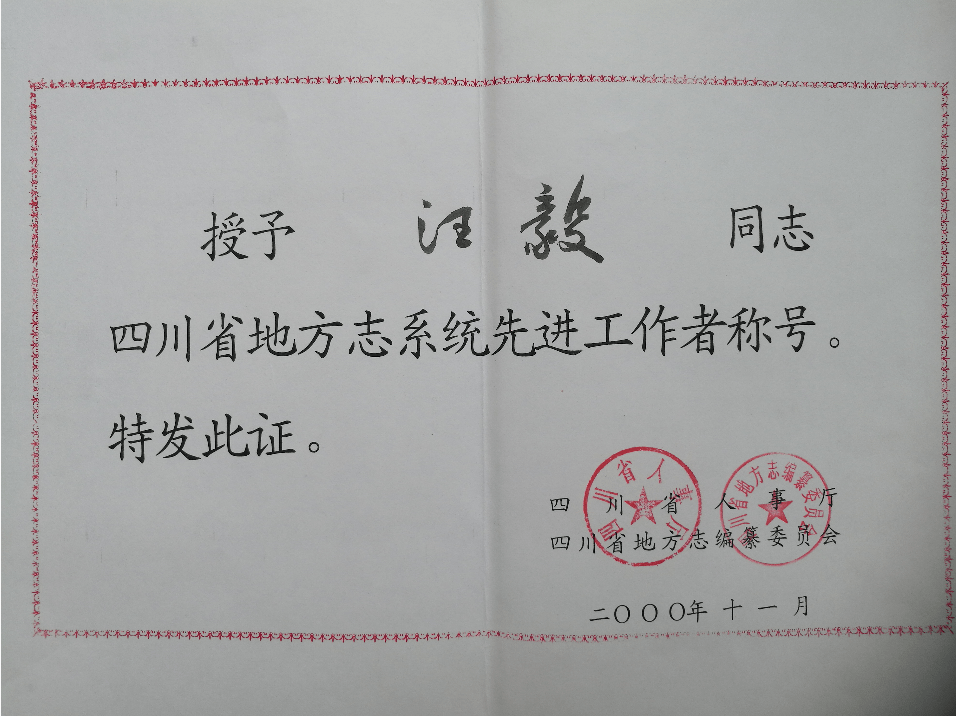 授予 汪毅 同志
四川省地方志系统先进工作者称号。
特发此证。
四川省人事厅
四川省地方志编纂委员会
二〇〇〇年十一月
四川省人事厅
四川省地方志编纂委员会